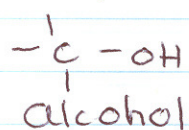 - C - OH
alcohol